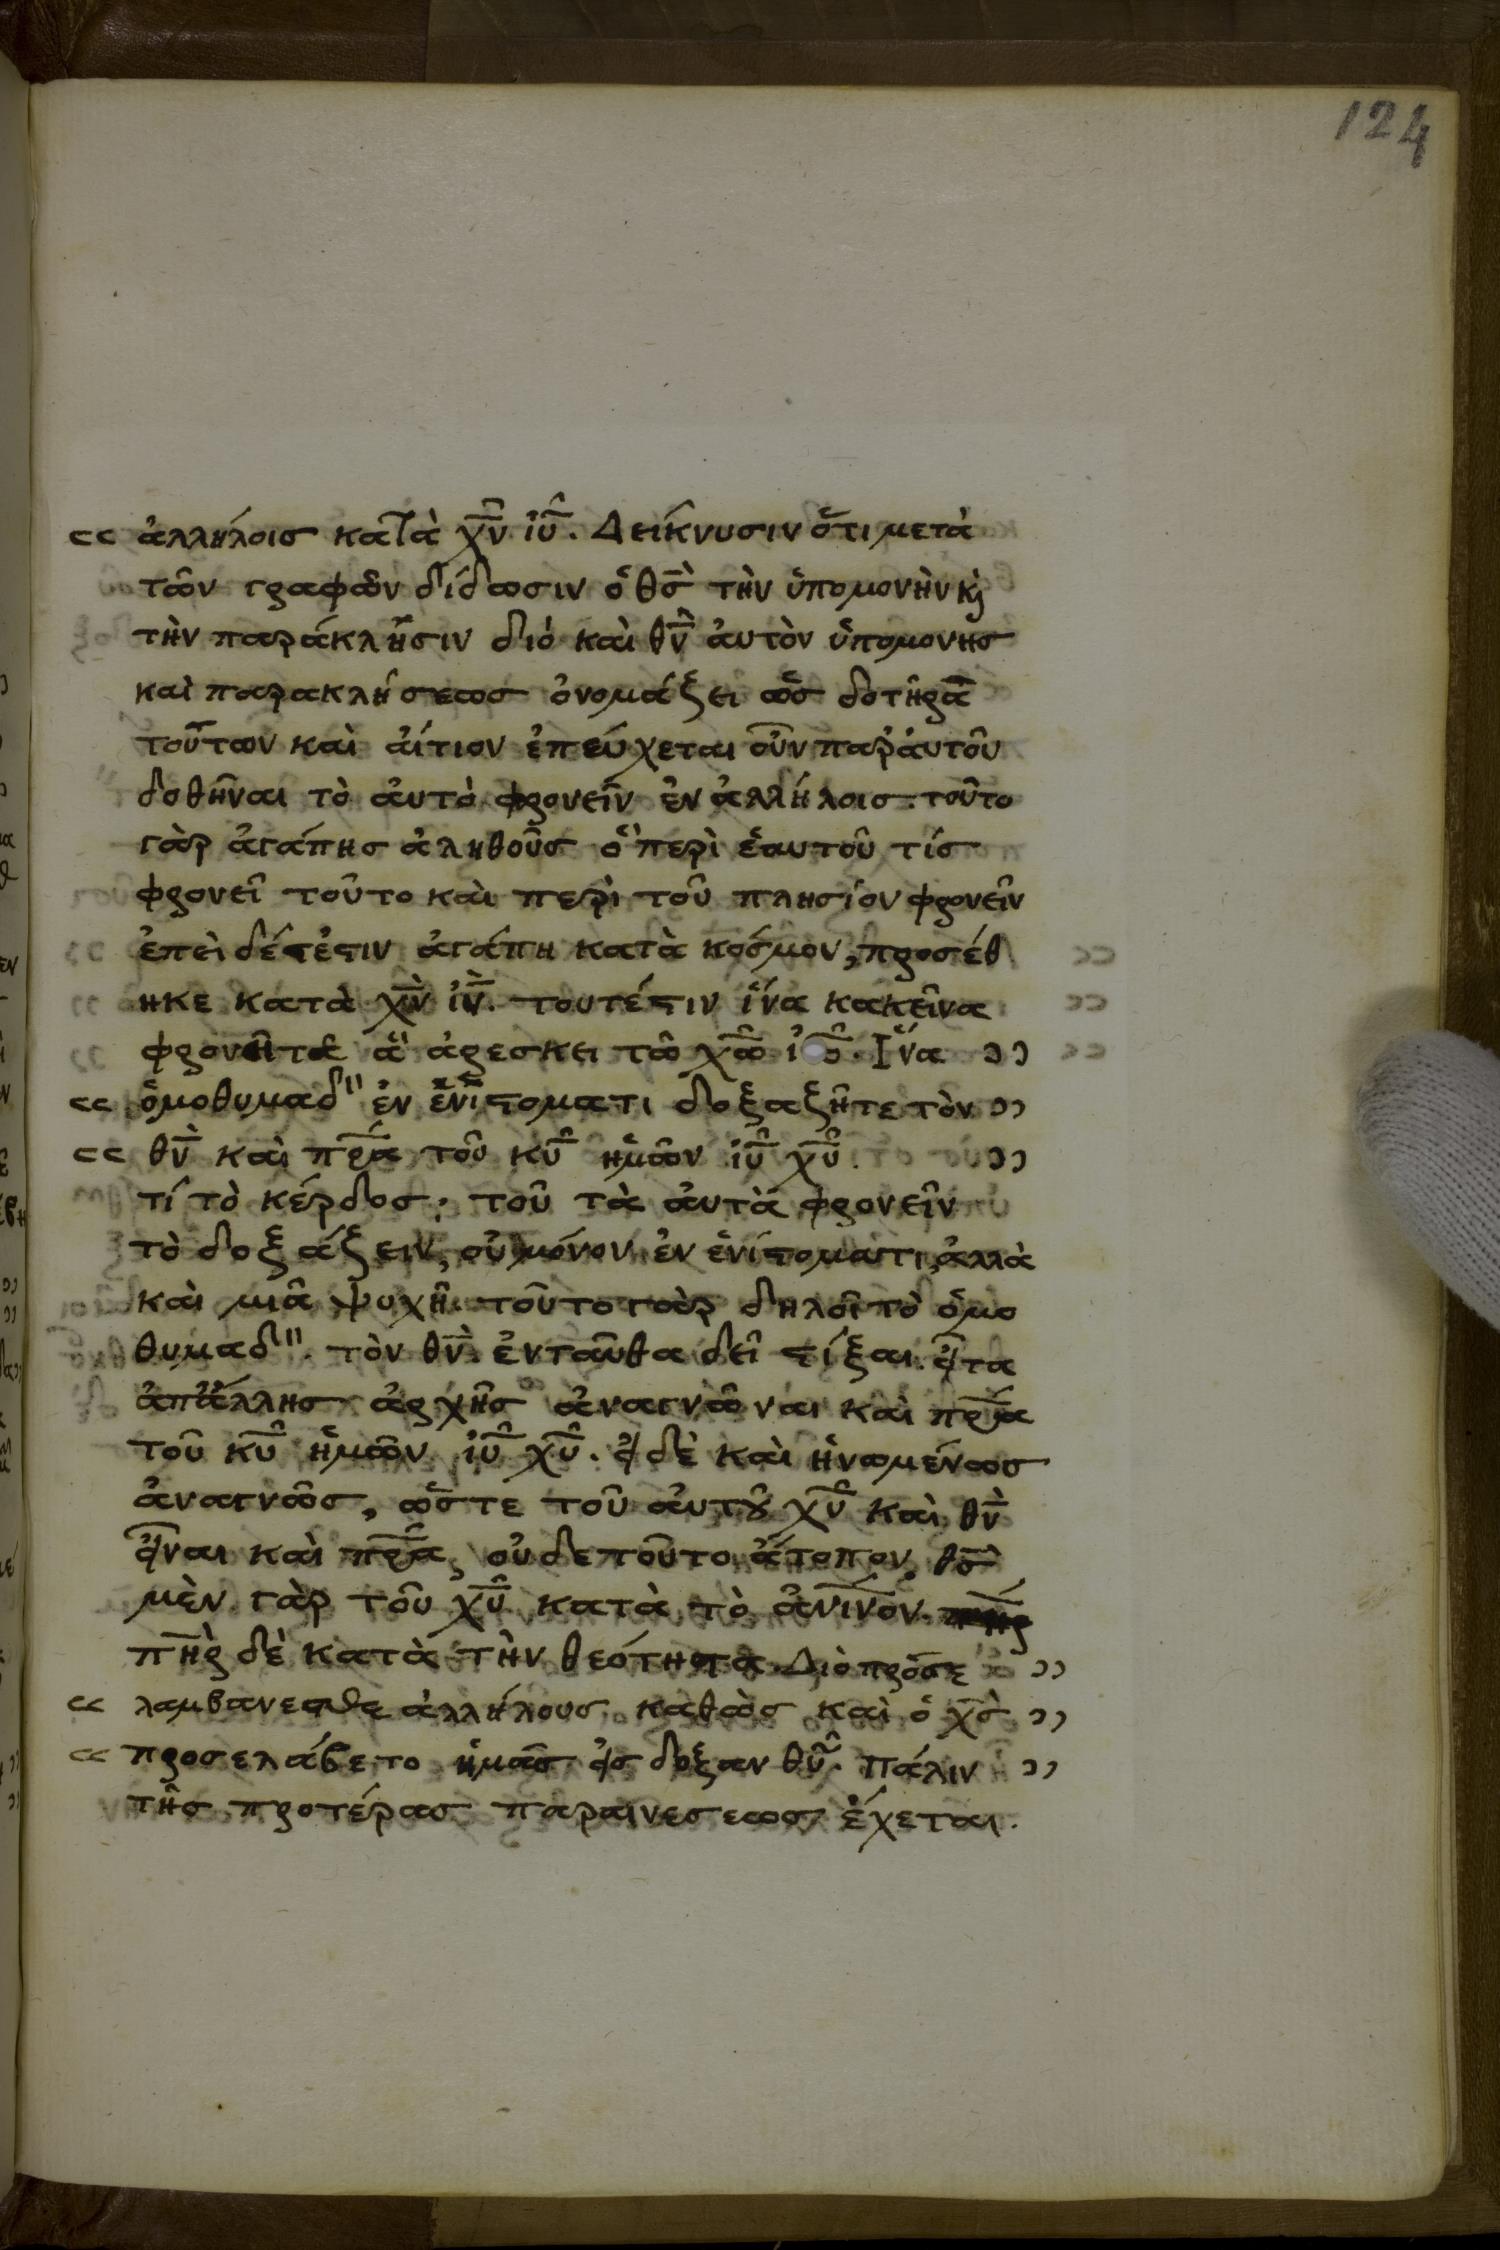 124
ἀλλήλοισ κατὰ χ̅ν̅ ἰ̅υ̅. Δείκνυσιν ὅτι μετὰ
τῶν γραφῶν δίδωσιν ὁ θ̅σ̅ τὴν ὑπομονὴν κ̀
τὴν παράκλησιν διό καὶ θ̅ν̅ ἀυτὸν ὑπομονησ
καὶ παρακλήσεωσ ὀνομάζει ὡσ δοτῆρα
τούτων καὶ ἀίτιον ἐπεύχεται οὖν παρἀυτοῦ
δοθῆναι τὸ ἀυτὸ φρονεῖν ἐν ἀλλήλοισ. τοῦτο
γὰρ ἀγάπησ ἀληθοῦσ ὅ περὶ ἑαυτοῦ τίσ
φρονεῖ τοῦτο καὶ περὶ τοῦ πλησίον φρονεῖν
ἐπεὶ δέ ἐστιν ἀγάπη κατὰ κόσμον, προσέθ
ηκε κατὰ χ̅ν̅ ἰ̅ν̅. τουτέστιν ἵνα κακεῖνα
φρονῆτε ἅ ἀρεσκει τῶ χ̅ω̅ ἰ̅υ̅. Ἵνα
ὁμοθυμαδ" ἐν ἑνὶ στοματι δοξαζῆτε τὸν
θ̅ν̅ καὶ π̅ρ̅α̅ τοῦ κ̅υ̅ ἡμῶν ἰ̅υ̅ χ̅υ̅.
τί τὸ κέρδοσ; τοῦ τὰ ἀυτὰ φρονεῖν
τὸ δοξάζειν, οὐ μόνον ἐν ἑνί στοματι, ἀλλὰ
καὶ μιᾶ ψυχῆ. τοῦτο γὰρ δηλοῖ τὸ ὁμο
θυμαδ". τὸν θ̅ν̅. ἐνταῦθα δεῖ στίξαι. εἶτα
ἀπάλλησ ἀρχῆσ ἀναγνῶναι καὶ π̅ρ̅α̅
τοῦ κ̅υ̅ ἡμῶν ἰ̅υ̅ χ̅υ̅. εἰ δὲ καὶ ἡνωμένωσ
ἀναγνῶσ, ὥστε τοῦ ἀυτȣ χ̅υ̅ καὶ θ̅ν̅
εἶναι καὶ π̅ρ̅α̅, οὐδε τοῦτο ἄτοπον. θ̅σ̅
μὲν γὰρ τοῦ χ̅υ̅ κατὰ τὸ ἀ̅ν̅ινον.
π̅η̅ρ̅ δὲ κατὰ τὴν θεότητα. Διὸ πρόσ
λαμβανεσθε ἀλλήλουσ καθὼσ καὶ ὁ χ̅σ̅
προσελάβετο ἡμᾶσ εἰσ δοξαν θ̅υ̅. Πάλιν
τῆσ προτέρασ παραινεσεωσ ἔχεται.